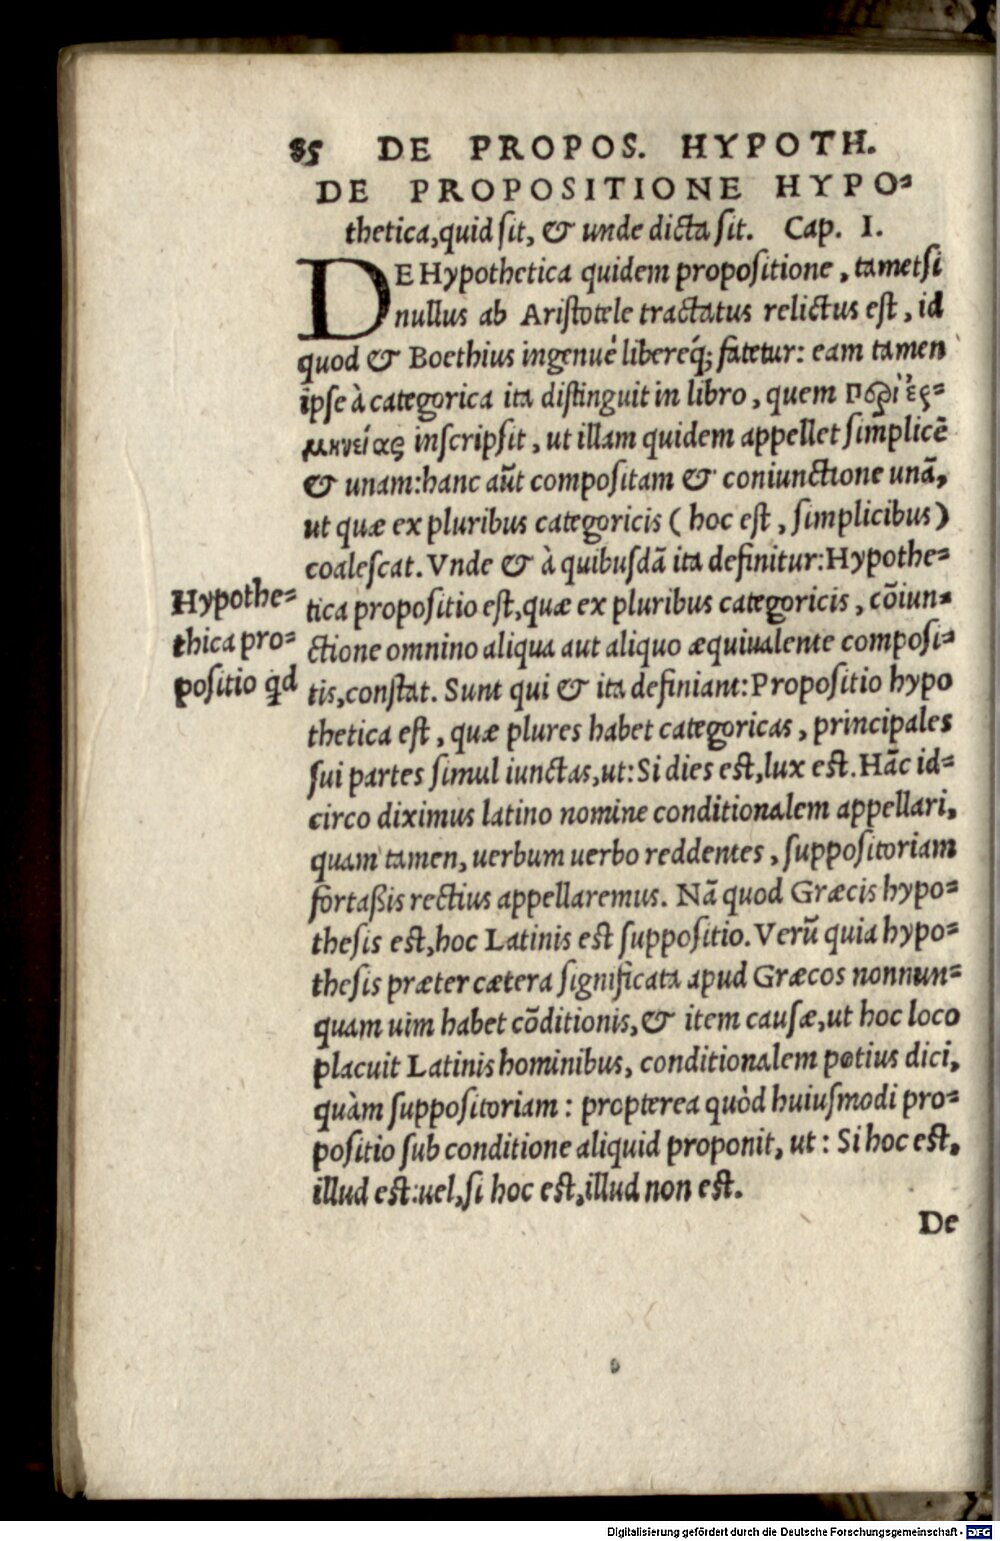 85 DE PROPOS. HYPOTH.
DE PROPOSITIONE HYPO-
thetica, quid sit, & unde dicta sit. Cap. I.
DE Hypothetica quidem propositione, tametsi
nullus ab Aristotele tractatus relictus est, id
quod & Boethius ingenuè libereq́; fatetur: eam tamen
ipse à categorica ita distinguit in libro, quem περὶ ἑρ-
μηνείας inscripsit, ut illam quidem appellet simplicẽ
& unam: hanc aũt compositam & coniunctione unã,
ut quæ ex pluribus categoricis (hoc est, simplicibus)
coalescat. Vnde & à quibusdã ita definitur: Hypothe-
Hypothe-
thica pro-
positio qd
tica propositio est, quæ ex pluribus categoricis, cõiun-
ctione omnino aliqua aut aliquo æquiualente composi-
tis, constat. Sunt qui & ita definiant: Propositio hypo
thetica est, quæ plures habet categoricas, principales
sui partes simul iunctas, ut: Si dies est, lux est. Hãc id-
circo diximus latino nomine conditionalem appellari,
quam tamen, uerbum uerbo reddentes, suppositoriam
fortaßis rectius appellaremus. Nã quod Græcis hypo-
thesis est, hoc Latinis est suppositio. Verũ quia hypo-
thesis præter cætera significata apud Græcos nonnun-
quam uim habet cõditionis, & item causæ, ut hoc loco
placuit Latinis hominibus, conditionalem potius dici,
quàm suppositoriam: propterea quòd huiusmodi pro-
positio sub conditione aliquid proponit, ut: Si hoc est,
illud est: uel, si hoc est, illud non est.
De
Digitalisierung gefördert durch die Deutsche Forschungsgemeinschaft - DFG